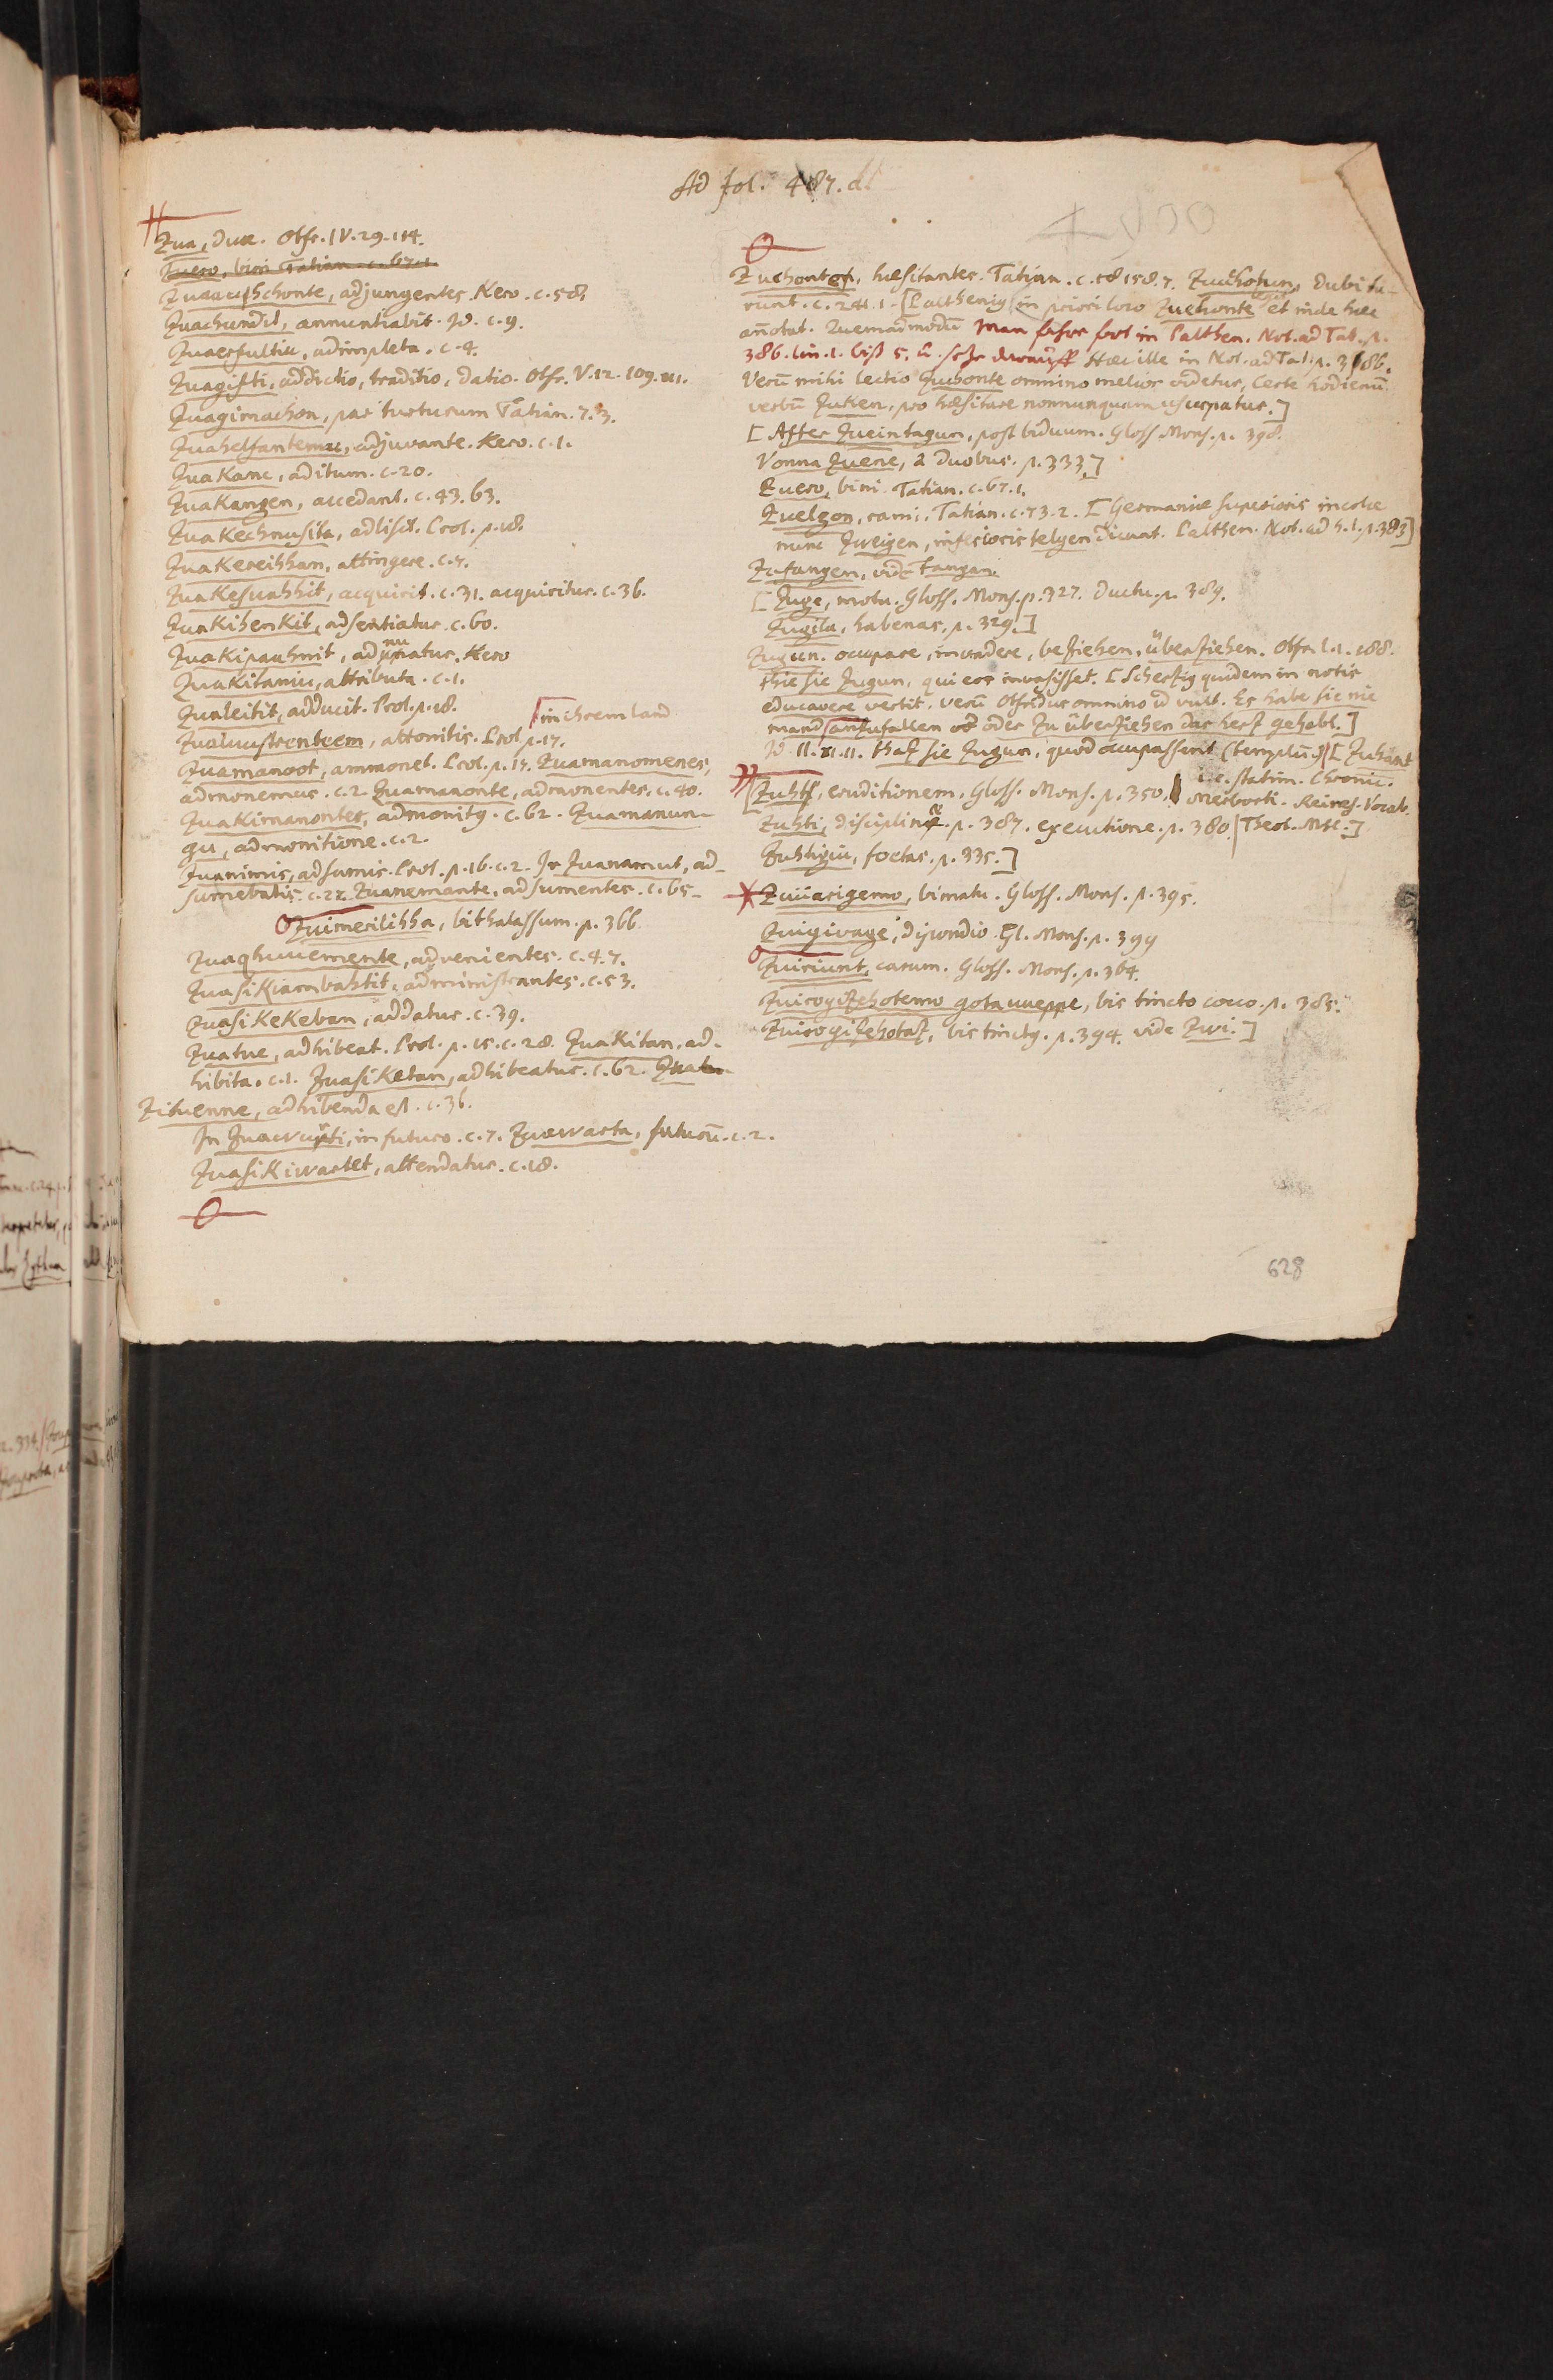 Ad fol. 487. d.
Zua, duæ. Otfr. IV. 29. 114.
Zuero, bini Tatian. c. 67. 1.
Zuaauhhchonte, adjungentes. Kero. c. 58.
Zuachundit, annuntiabit. Id. c. 9.
Zuaerfultiu, adimpleta. c. 4.
Zuagifti, addictio, traditio, datio. Otfr. V. 12. 109. XII.
Zuagimachon, par turturum Tatian. 7. 3.
Zuahelfantemu, adjuvante. Kero. c. 1.
ZuaKanc, aditum. c. 20.
ZuaKangen, accedant. c. 43. 63.
ZuaKechnusita, adlisit. Prol. p. 18.
ZuaKereihhan, attingere. c. 7.
ZuaKesuahhit, acquirit. c. 31. acquiritur. c. 36.
ZuaKihenKit, adsentiatur. c. 60.
ZuaKipauhnit, adnuatur. Kero
ZuaKitaniu, attributa. c. 1.
Zualeitit, adducit. Prol. p. 18.
Zualuustrenteem, attonitis. Prol. p. 17.
Zuamanoot, ammonet. Prol. p. 17. Zuamanomenes,
admonemus. c. 2. Zuamanonte, admonentes. c. 40.
ZuaKimanonter, admonitus. c. 62. Zuamanun-
gu, admonitione. c. 2.
Zuanimis, adsumis. Prol. p. 16. c. 2. Ir Zuanamut, ad-
sumebatis. c. 2. Zuanemante, adsumentes. c. 65.
Zuimerilihha, bithalassum. p. 366.
Zuaqhuuemente, advenientes. c. 47.
ZuasiKiambahtit, administrantes. c. 53.
ZuasiKeKeban, addatur. c. 39.
Zuatue, adhibeat. Prol. p. 15. c. 28. ZuaKitan, ad-
hibita. c. 1. ZuasiKetan, adhibeatur. c. 62. Zua
Zituenne, adhibenda est. c. 36.
In Zuawurti, in futuro. c. 7. Zuawarta, futurū. c. 2.
ZuasiKiwartet, attendatur. c. 18.
Zuehonter, hæsitantes. Tatian. c. 158. 7. Zuehotun, dubita-
runt. c. 241. 1. [Palthenius in priori loco legit Zuehonte et inde hæc
añotat. Quemadmodū Man fahre fort in Palthen. Not. ad Tat. p.
386. lin. 1. biß 5. u. setze darauff Hæc ille in Not. ad Tat. p. 386.
Verū mihi lectio Zuehonte omnino melior videtur, Certe hodiernū
verbū Zuken, pro hæsitare nonnunquam usurpatur.]
[After Zueintagun, post biduum. Gloss. Mons. p. 398.
Vonna Zuene, a duobus. p. 333.]
Zuero, bini. Tatian. c. 67. 1.
Zuelgon, rami. Tatian. c. 73. 2. [Germaniæ superioris incolæ
nunc Zweigen, inferioris telgen dicunt. Palthen. Not. ad h. l. p. 383]
Zefangen, vide Fangan.
[Zuge, motu. Gloss. Mons. p. 327. ductu. p. 389.
Zugila, habenas. p. 329.]
Zugun. occupare, invadere, beziehen, überziehen. Otfr. I. 1. 188.
thie sie Zugun, qui eos invasisset. [Scherzius quidem in notis
educavere vertit. verū Otfridus omnino id vult. Es habe sie nie
mand in ihrem land anzufallen oder zu überziehen das herz gehabt.]
Id. II. XI. 11. thaz sie Zugun, quod occupassent (templū.) [Zuhant
i. e. statim. Chronic.
[Zuht, eruditionem. Gloss. Mons. p. 350. Merborti. Reines. Vocab.
Zuhti, disciplinæ. p. 387. executione. p. 380. Theot. Mst.]
Zuhtigiu, foetas. p. 335.]
Zuiiarigemo, bimatu. Gloss. Mons. p. 395.
Zuigiwage, dipondio. Gl. Mons. p. 399
Zuiriunt, carum. Gloss. Mons. p. 364.
Zuirogizehotemo gotauueppe, bis tincto cocco. p. 385.
Zuirogizehotaz, bis tinctus. p. 394. vide Zwi.]
628